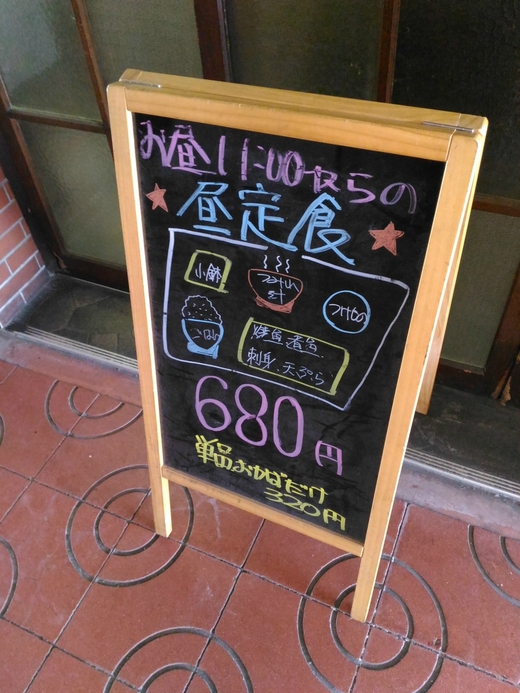 お昼11:00からの
昼定食
小鉢
みそ汁
つけもの
ごはん
焼魚 煮魚
刺身、天ぷら
680円
単品おかずだけ
320円